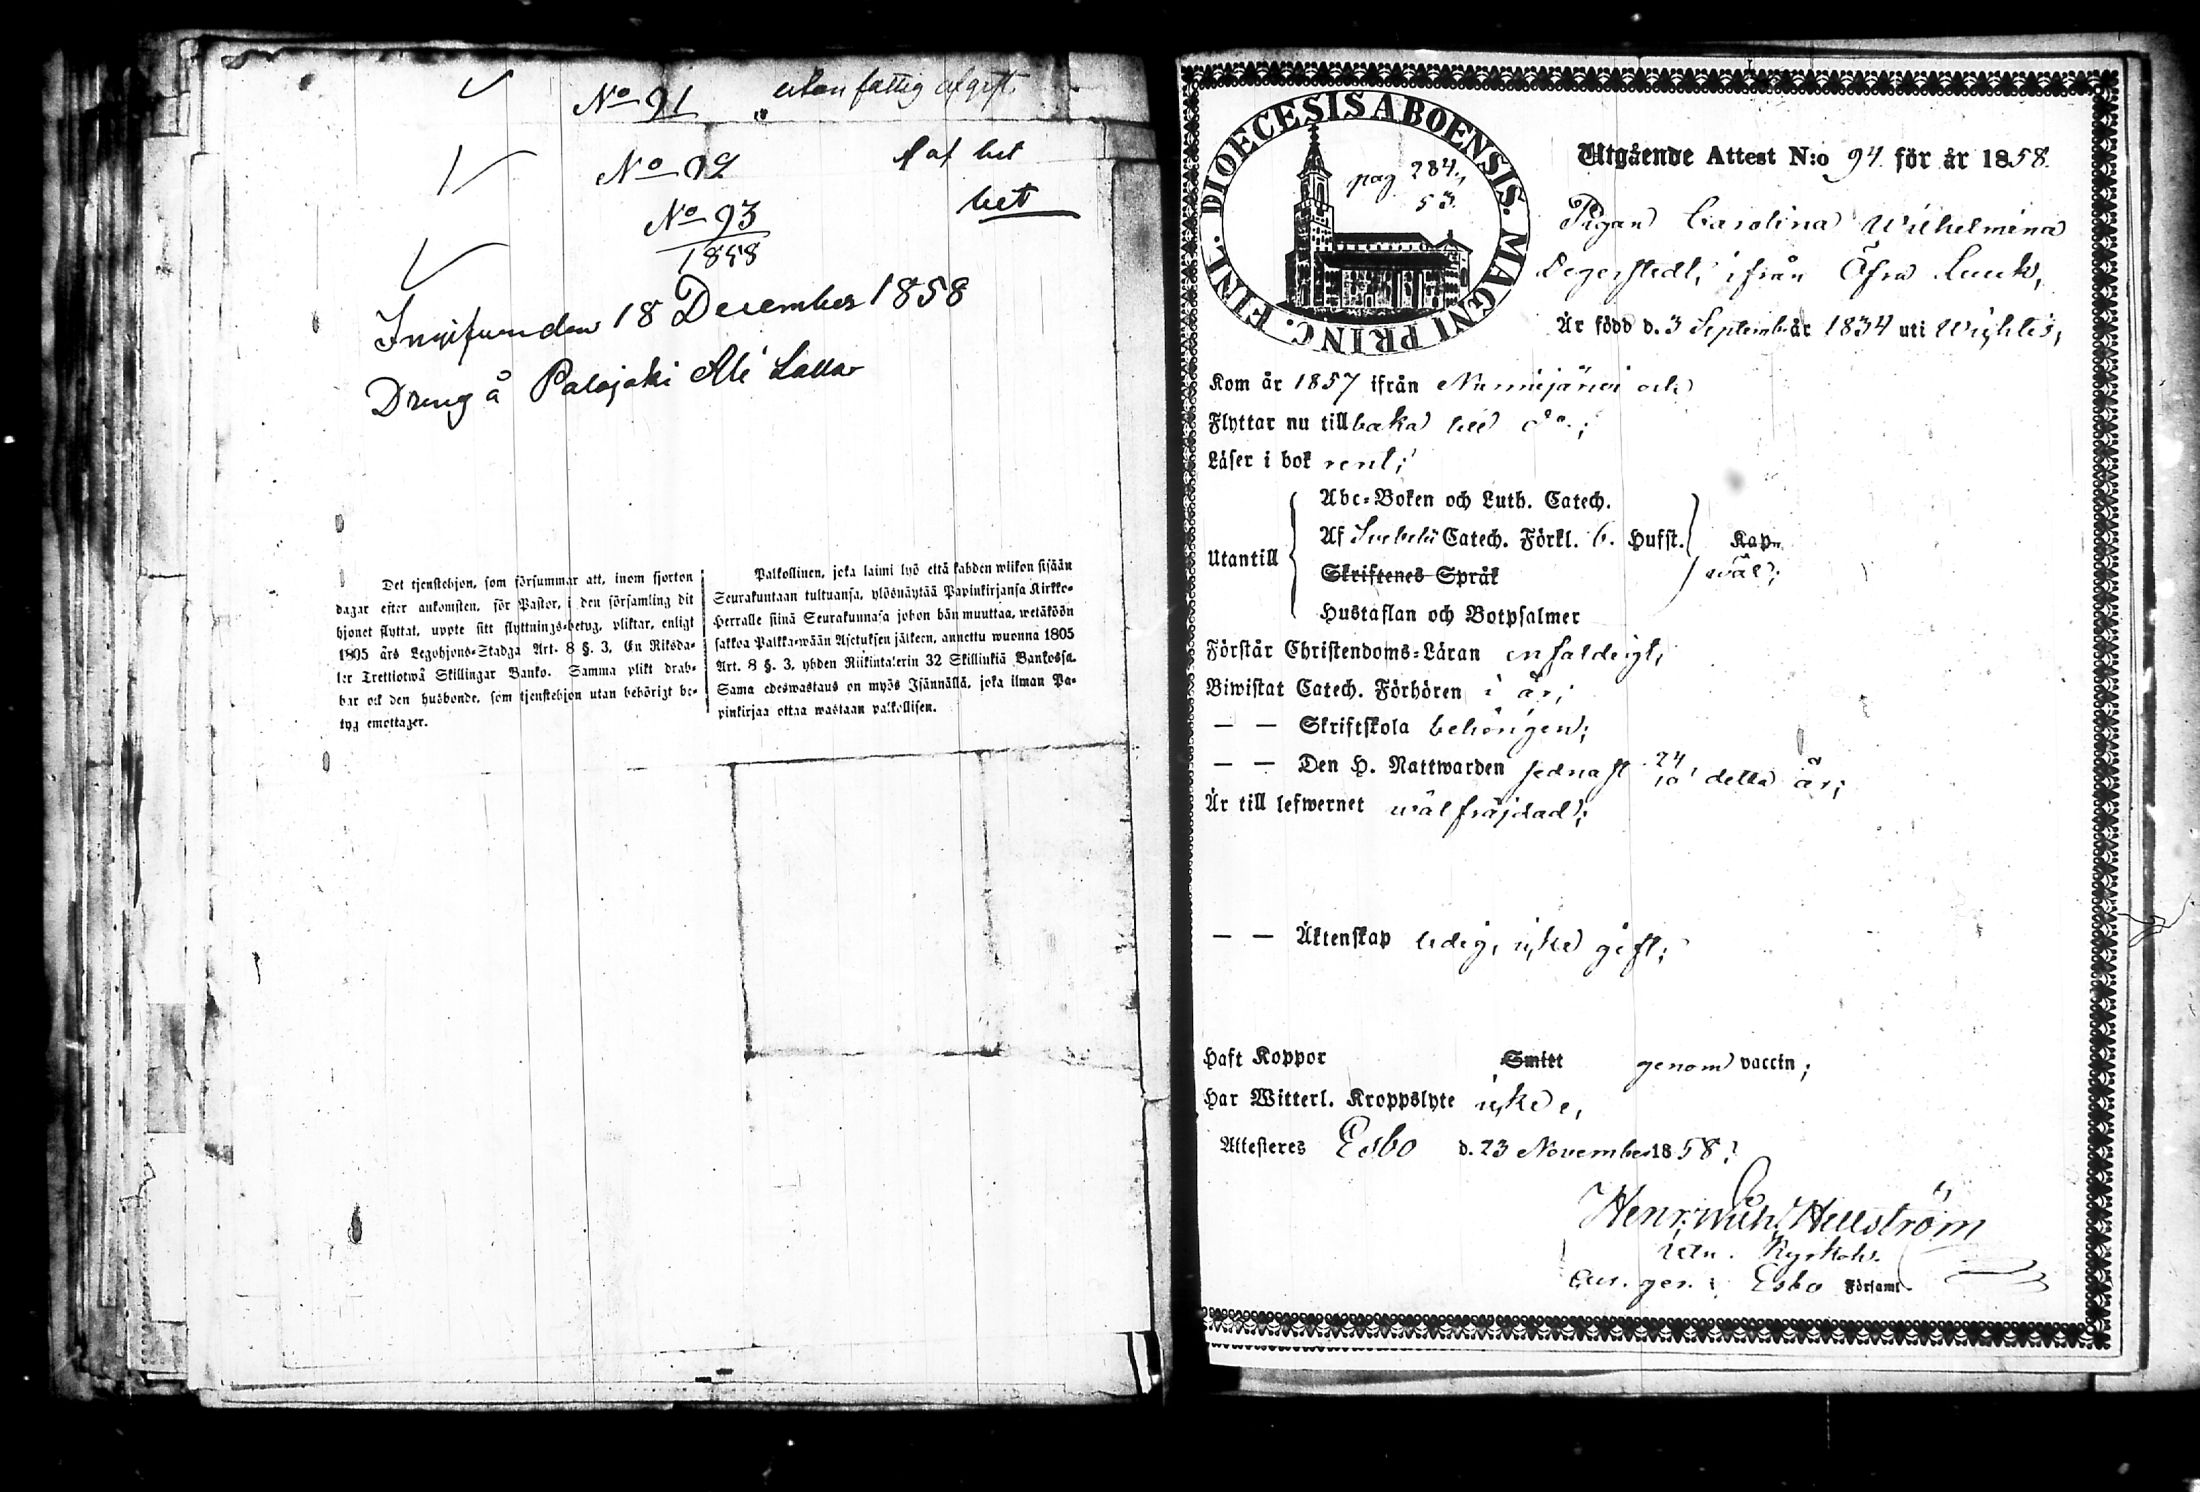 No 91 utan fattig afgift
No 92 af bet
No 93 bet
1858
18 December 1858
Dreng å Palojoki Ali Lallar
Det tjenstehjon, som försummar att, inom fjorton
dagar efter ankomsten, för Pastor, i den församling dit
hjonet flyttat, uppte sitt flyttnings-betyg, pliktar, enligt
1805 års Legohjons-Stadga Art. 8 §. 3, En Riksda-
ler Trettiotwå Skillingar Banko. Samma plikt drab-
bar ock den husbonde, som tjenstehjon utan behörigt be-
tyg emottager.
Palkollinen, joka laimi lyö että kahden wiikon sisään
Seurakuntaan tultuansa, ylösnäytää Papinkirjansa Kirkko-
Herralle siinä Seurakunnasa johon hän muuttaa, wetäköön
sakkoa Palkka-wään Asetuksen jälkeen, annettu wuonna 1805
Art. 8 §. 3, yhden Riikintalerin 32 Skillinkiä Bankossa.
Sama edeswastaus on myös Isännällä, joka ilman Pa-
pinkirjaa ottaa wastaan palkollisen.
DIOECESIS ABOENSIS. MAGNI PRINC. FINL.
pag 284,
53.
Utgående Attest N:o 94. för år 1858.
Pigan Carolina Wilhelmina
Degerstedt, ifrån Öfra
Är född d. 3 Septemb. år 1834 uti Wichtis,
Kom år 1857 ifrån Nurmijärvi och
Flyttar nu tillbaka till do.;
Läser i bok rent;
Abc-Boken och Luth. Catech.
Utantill Af Svebelii Catech. Förkl. 6. Hufst. Kap.
Skriftenes Språk wäl;
Hustaflan och Botpsalmer
Förstår Christendoms-Läran enfaldeigt,
Biwistat Catech. Förhören i år;
— — Skriftskola behörigen;
— — Den H. Nattwarden sednast 24/10 detta år;
Är till lefwernet wälfräjdad;
— — Äktenskap ledig, icke gift;
Haft Koppor Smitt genom vaccin;
Har Witterl. Kroppslyte icke,
Attesteres Esbo d. 23 November 1858.
Henr. Wilh. Hellström
Kyrkoh.
i Esbo Församl.